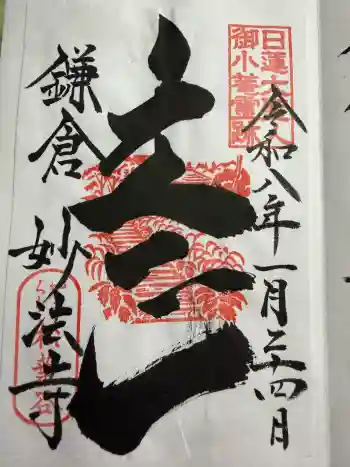 日蓮大聖人
御小菴霊跡
令和八年一月二十四日
立正
鎌倉
妙法寺